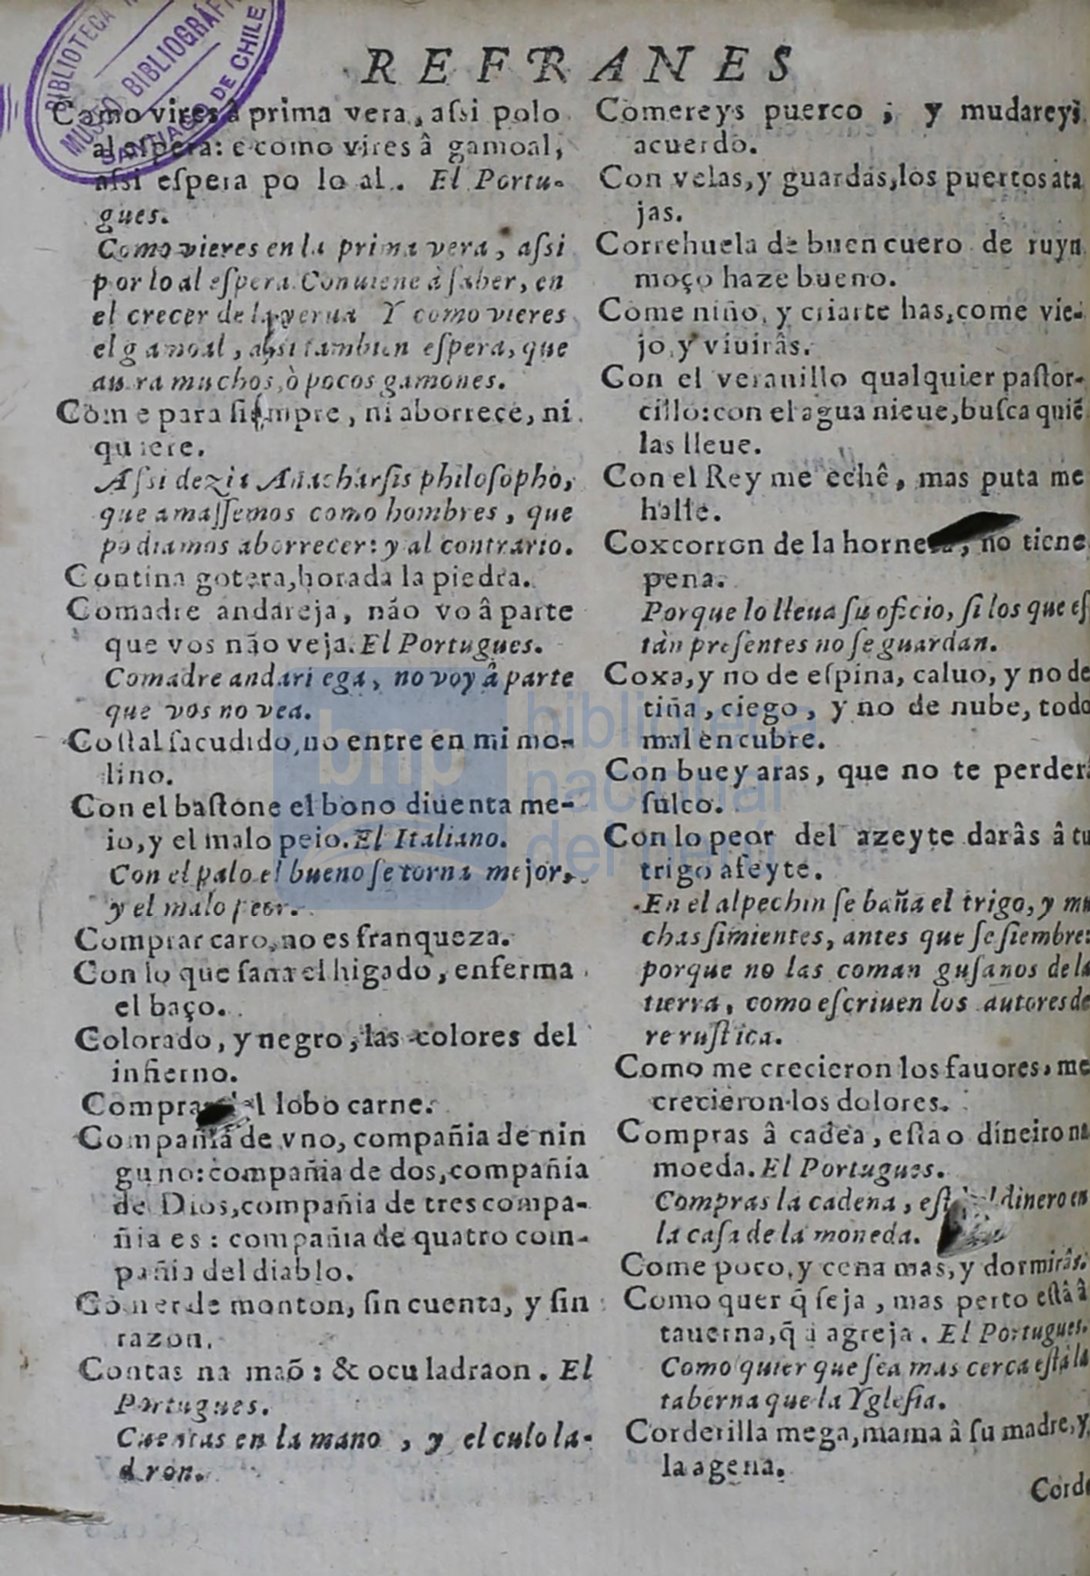 REFRANES
Como vires â prima vera, assi polo
al espera: e como vires â gamoal,
assi espera po lo al. El Portu-
gues.
Como vieres en la prima vera, aſsi
por lo al eſpera. Conuiene à ſaber, en
el crecer de la yerua Y como vieres
el gamoal, aſsi tambien eſpera, que
aura muchos, ò pocos gamones.
Come para ſiempre, ni aborrece, ni
quiere.
Aſsi dezia Anacharſis philoſopho,
que amaſſemos como hombres, que
podiamos aborrecer: y al contrario.
Contina gotera, horada la piedra.
Comadre andareja, não vo â parte
que vos não veja. El Portugues.
Comadre andariega, no voy â parte
que vos no vea.
Coſtal ſacudido, no entre en mi mo-
lino.
Con el baſtone el bono diuenta me-
io, y el malo peio. El Italiano.
Con el palo el bueno ſe torna mejor,
y el malo peor.
Comprar caro, no es franqueza.
Con lo que ſana el higado, enferma
el baço.
Colorado, y negro, las colores del
infierno.
Comprar del lobo carne.
Compañia de vno, compañia de nin
guno: compañia de dos, compañia
de Dios, compañia de tres compa-
ñia es: compañia de quatro com-
pañia del diablo.
Comer de monton, ſin cuenta, y ſin
razon.
Contas na maõ: & ocu ladraon. El
Portugues.
Cuentas en la mano, y el culo la-
dron.
Comereys puerco; y mudareys
acuerdo.
Con velas, y guardas, los puertos ata
jas.
Correhuela de buen cuero de ruyn
moço haze bueno.
Come niño, y criarte has, come vie-
jo, y viuirâs.
Con el veranillo qualquier paſtor-
cillo: con el agua nieue, buſca quiẽ
las lleue.
Con el Rey me echê, mas puta me
halle.
Coxcorron de la hornera, no tiene
pena.
Porque lo lleua ſu oficio, ſi los que eſ
tàn preſentes no ſe guardan.
Coxa, y no de eſpina, caluo, y no de
tiña, ciego, y no de nube, todo
mal encubre.
Con buey aras, que no te perder
ſulco.
Con lo peor del azeyte darâs â tu
trigo afeyte.
En el alpechin ſe baña el trigo, y mu
chas ſimientes, antes que ſe ſiembre:
porque no las coman guſanos de la
tierra, como eſcriuen los autores de
re ruſtica.
Como me crecieron los fauores, me
crecieron los dolores.
Compras â cadea, eſta o dineiro na
moeda. El Portugues.
Compras la cadena, eſt dinero en
la caſa de la moneda.
Come poco, y cena mas, y dormirâs.
Como quer q̃ ſeja, mas perto eſtâ â
tauerna, q̃ a agreja. El Portugues.
Como quier que ſea mas cerca eſtà la
taberna que la Ygleſia.
Corderilla mega, mama â ſu madre, y
la agena.
Corde
BIBLIOTECA
MUSEO BIBLIOGRÁFI
SANTIAGO DE CHILE
bnp
biblioteca
nacional
del perú